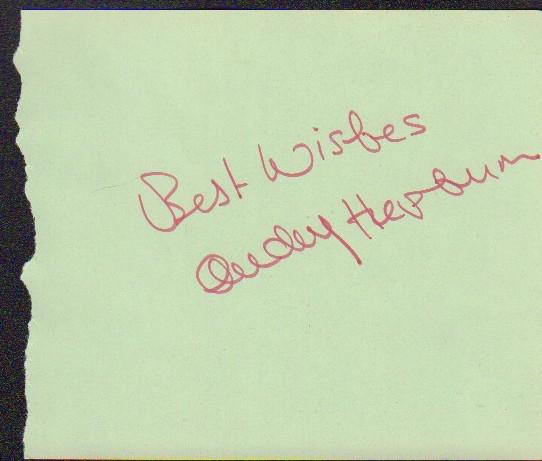 Best Wishes
Audrey Hepburn